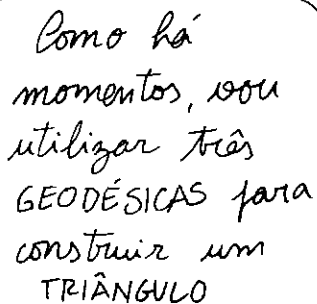 Como há
momentos, vou
utilizar três
GEODÉSICAS para
construir um
TRIÂNGULO